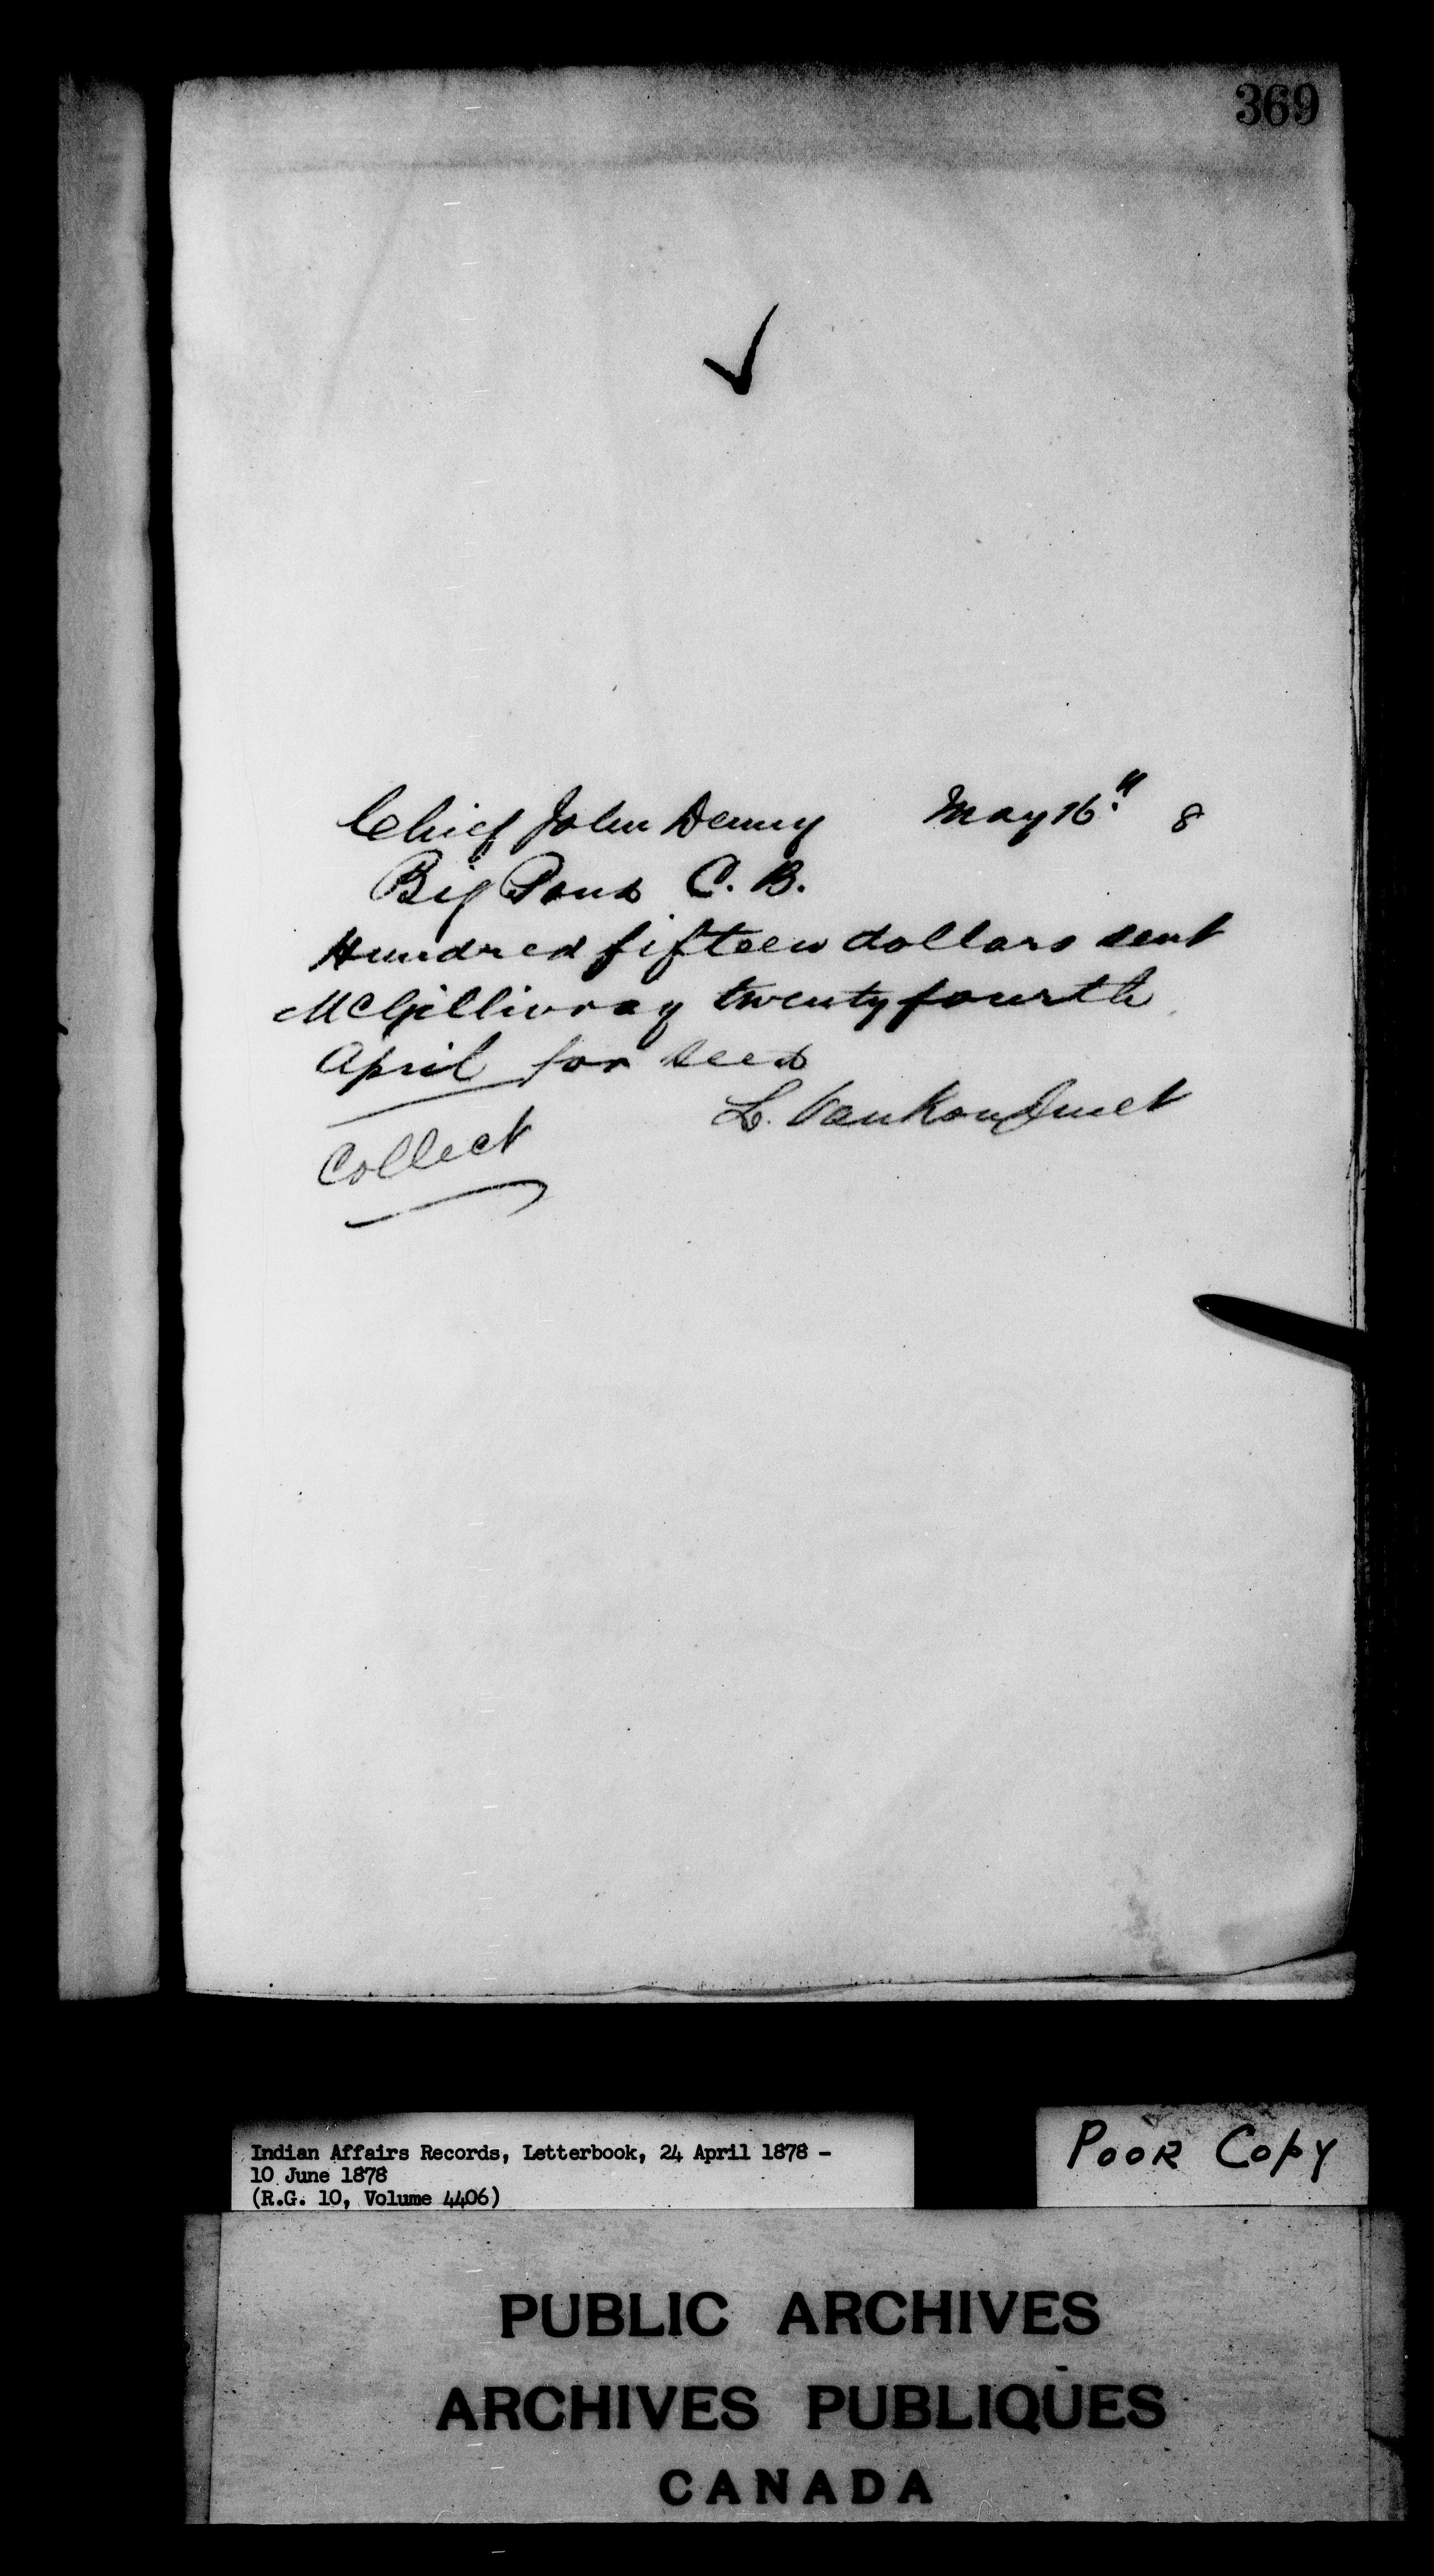 369
Chief John Denny May 16." 8
Big Pond C. B.
Hundred fifteen dollars sent
McGillivray twenty fourth
April for seed
L. VanKoughnet
Collect
Indian Affairs Records, Letterbook, 24 April 1878 -
10 June 1878
(R.G. 10, Volume 4406)
POOR COPY
PUBLIC ARCHIVES
ARCHIVES PUBLIQUES
CANADA